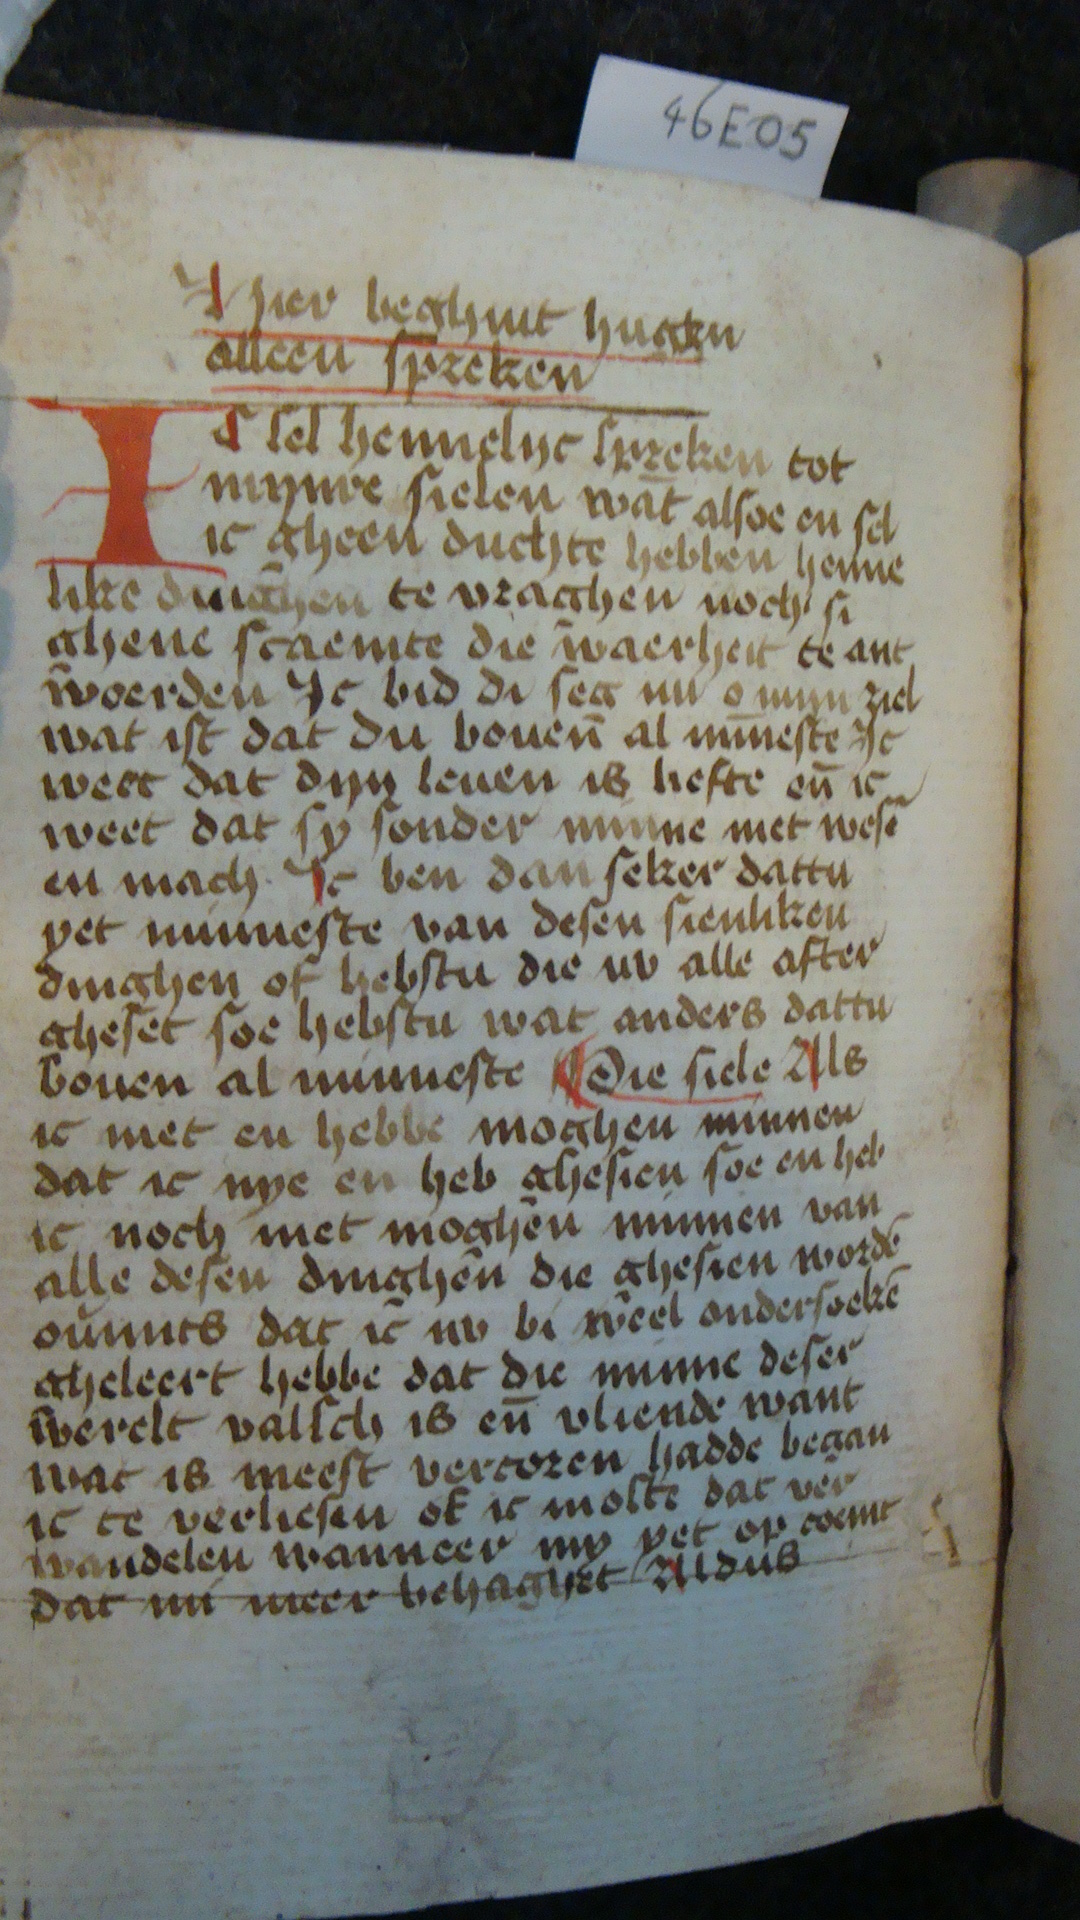 46E05
Hier beghint hughen
alleen spreken
IC sel hemelijc spreken tot
mijnre sielen wāt alsoe en sel
ic gheen duchte hebben heme
like dinghen te vraghen noch si
ghene scaemte die waerheit te ant
woerden Ic bid di seg nu o mijn ziel
wat ist dat du bouen al mīneste Ic
weet dat dijn leuen is liefte eñ ic
weet dat sy sonder minne niet wesē
en mach Ic ben dan seker dattu
yet minneste van desen sienliken
dinghen of hebstu die nv alle after
gheset soe hebstu wat anders dattu
bouen al minneste Die siele Als
ic niet en hebbe moghen minnen
dat ic nye en heb ghesien soe en heb
ic noch niet moghen minnen van
alle desen dinghen die ghesien wordē
ouermits dat ic nv bi wēel ondersoekē
gheleert hebbe dat die minne deser
werelt valsch is eñ vliende want
wat is meest vercozen hadde began
ic te verliesen of ic moste dat ver
wandelen wanneer my yet op coemt
dat mi meer behaghet Aldus